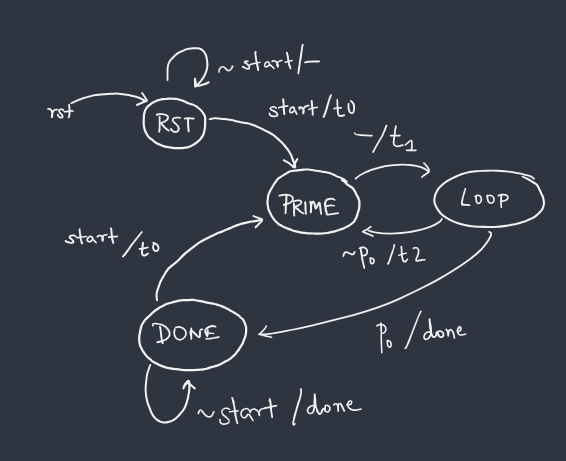 ~ start/–
rst
RST
start/t0
–/t1
PRIME
LOOP
start/t0
~p0/t2
DONE
p0/done
~start/done